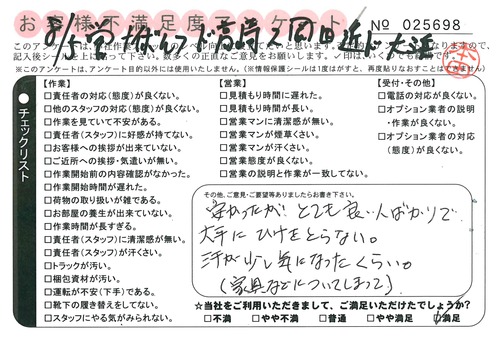 お客様不満足度アンケート № 025698
記入後シールを
※このアンケートは、アンケート目的以外には使用いたしません。(※情報保護シールは1度はがすと、再度貼りなおすことはできません)
チェックリスト
【作業】
□責任者の対応(態度)が良くない。
□他のスタッフの対応(態度)が良くない。
□作業を見ていて不安がある。
□責任者(スタッフ)に好感が持てない。
□お客様への挨拶が出来ていない。
□ご近所への挨拶・気遣いが無い。
□作業開始前の内容確認がなかった。
□作業開始時間が遅れた。
□荷物の取り扱いが雑である。
□お部屋の養生が出来ていない。
□作業時間が長すぎる。
□責任者(スタッフ)に清潔感が無い。
□責任者(スタッフ)が汗くさい。
□トラックが汚い。
□梱包資材が汚い。
□運転が不安(下手)である。
□靴下の履き替えをしてない。
□スタッフにやる気がみられない。
【営業】
□見積もり時間に遅れた。
□見積もり時間が長い。
□営業マンに清潔感が無い。
□営業マンが煙草くさい。
□営業マンが汗くさい。
□営業態度が良くない。
□営業の説明と作業が一致してない。
【受付・その他】
□電話の対応が良くない。
□オプション業者の説明・作業が良くない。
□オプション業者の対応(態度)が良くない。
その他、ご意見・ご要望等ありましたらお書き下さい。
安かったが とても良い人ばかりで
大手にひけをとらない。
汗が少し気になったくらい。
(家具などについてしまって)
☆当社をご利用いただきまして、ご満足いただけたでしょうか?
□不満 □やや不満 □普通 □やや満足 □満足